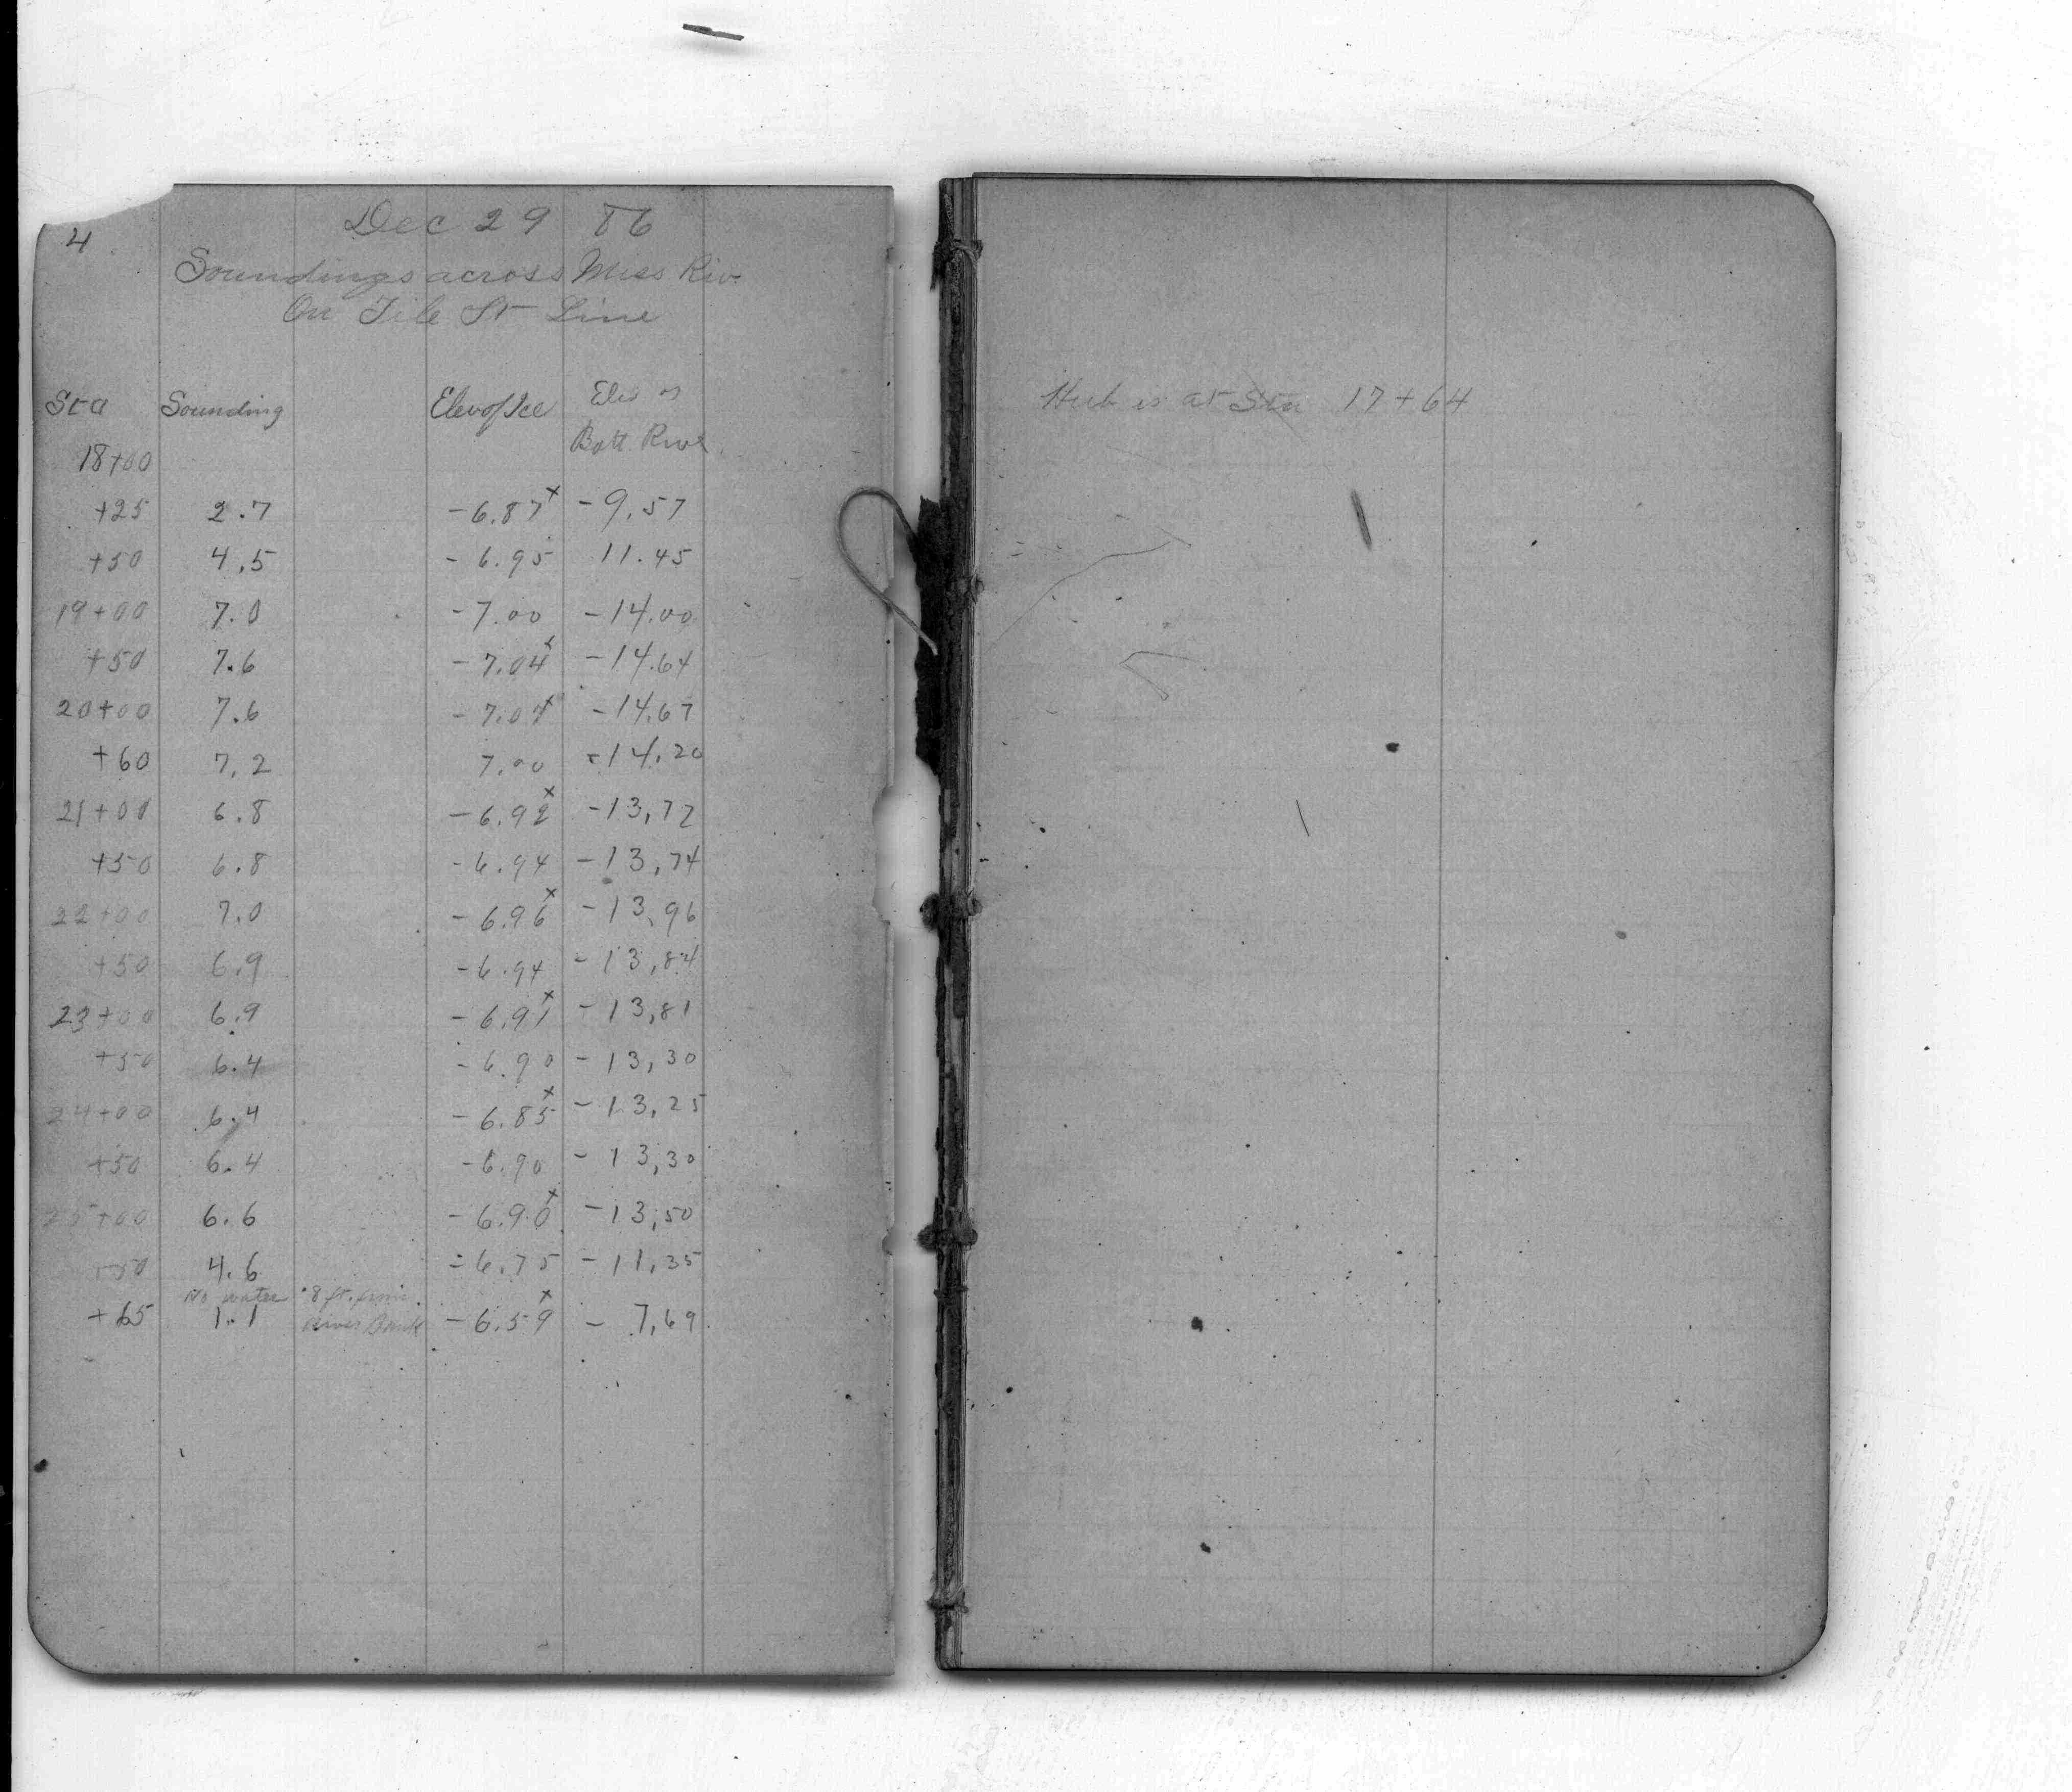 4
Dec 29 86
Soundings across Miss Riv.
On File St Line
Sta Sounding Elev of Ice Elev of Bott River
18+00
+25 2.7 -6.87x -9.57
+50 4.5 -6.95 11.45
19+00 7.0 -7.00 -14.00
+50 7.6 -7.04x -14.64
20+00 7.6 -7.07x -14.67
+60 7.2 7.00 -14.20
21+00 6.8 -6.92x -13.72
+50 6.8 -6.94 -13.74
22+00 7.0 -6.96x -13.96
+50 6.9 -6.94 -13.84
23+00 6.9 -6.91x -13.81
+50 6.4 -6.90 -13.30
24+00 6.4 -6.85x -13.25
+50 6.4 -6.90 -13.30
25+00 6.6 -6.90x -13.50
+50 4.6 -6.75 -11.35
No water 8 ft. from
+65 1.1 River Bank -6.59x -7.69
Hub is at Sta 17+64